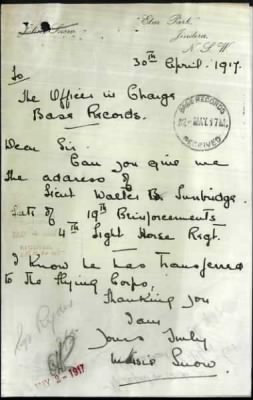 "Elm Park"
Jindera
N.S.W.
30th April. 1917.
To
The Officer in Charge
Base Records.
BASE RECORDS
2-MAY.17
RECEIVED
Dear Sir.
Can you give me
the address of
Lieut Walter B. Sunbridge.
Late of 19th Reinforcements
4th Light Horse Regt.
I know he has Transferred
to The Flying Corps,
Thanking you
I am
Yours Truly
Snow.
MAY 2-1917